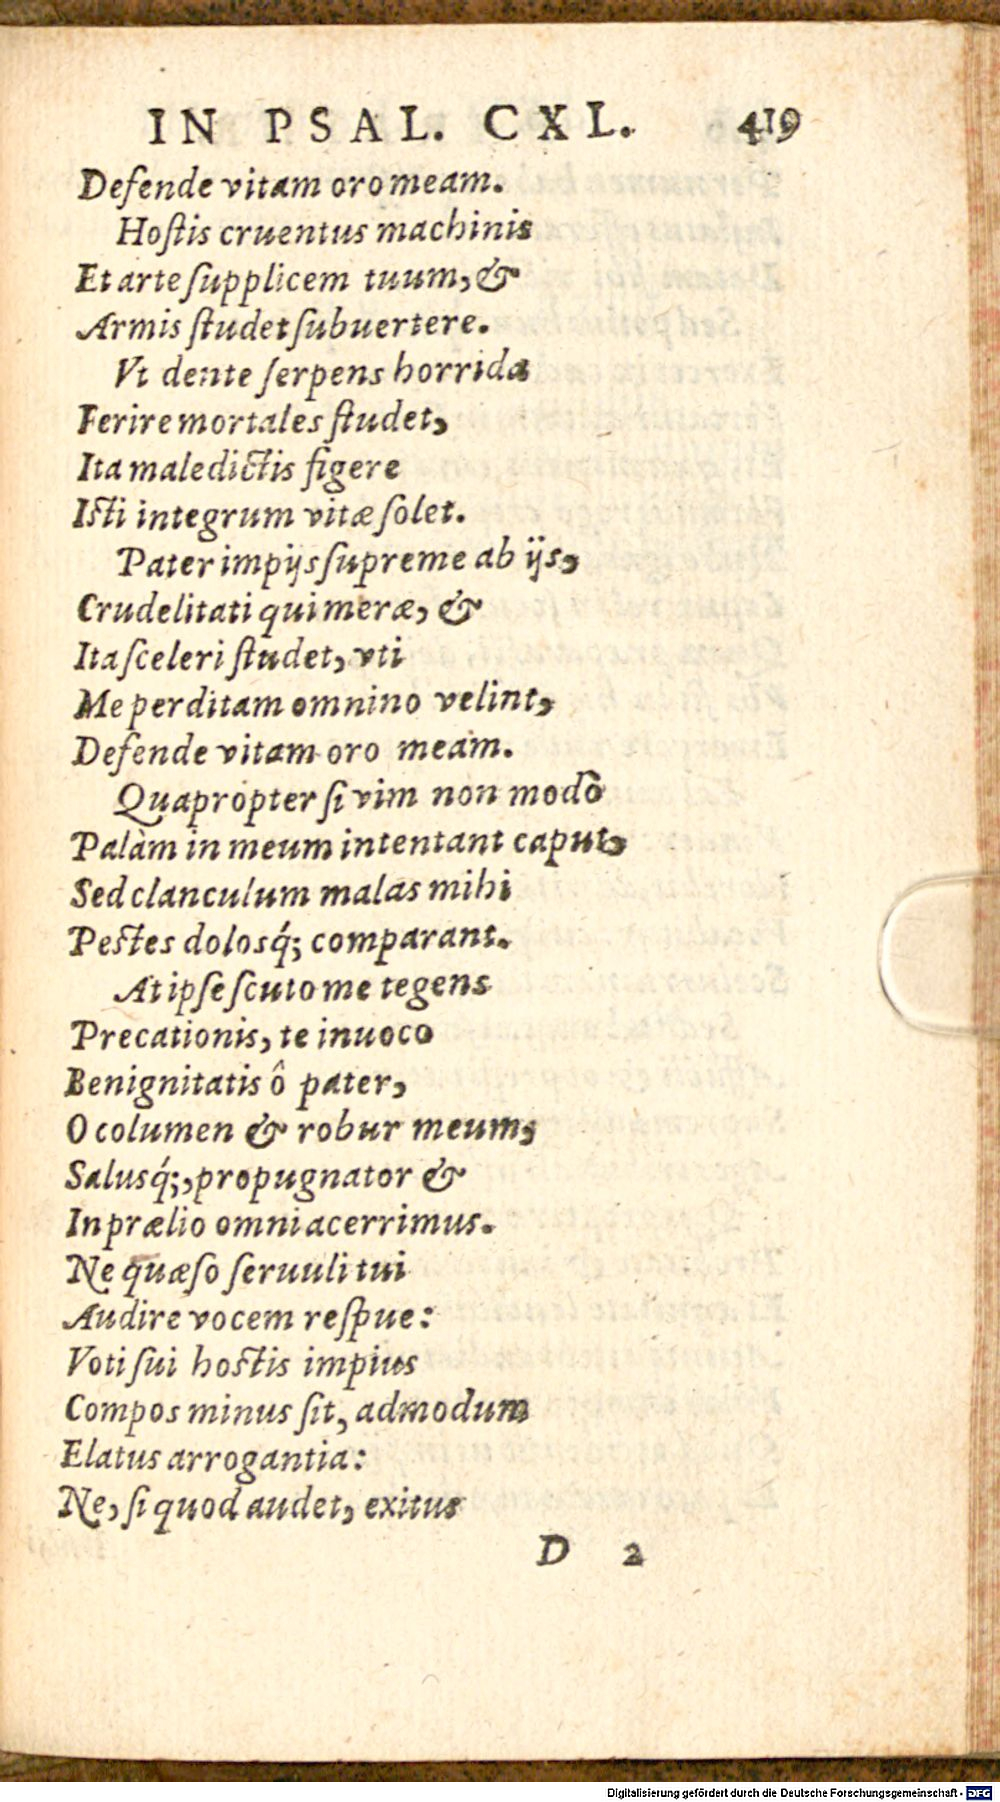 IN PSAL. CXL. 419
Defende vitam oro meam.
Hoſtis cruentus machinis
Et arte ſupplicem tuum, &
Armis ſtudet ſubuertere.
Vt dente ſerpens horrida
Ferire mortales ſtudet,
Ita maledictis figere
Iſti integrum vitæ ſolet.
Pater impijs ſupreme ab ijs,
Crudelitati qui meræ, &
Ita ſceleri ſtudet, vti
Me perditam omnino velint,
Defende vitam oro meam.
Quapropter ſi vim non modò
Palàm in meum intentant caput,
Sed clanculum malas mihi
Peſtes dolosq́; comparant.
At ipſe ſcuto me tegens
Precationis, te inuoco
Benignitatis ô pater,
O columen & robur meum,
Salusq́;, propugnator &
In prælio omni acerrimus.
Ne quæſo ſeruuli tui
Audire vocem reſpue:
Voti ſui hoſtis impius
Compos minus ſit, admodum
Elatus arrogantia:
Ne, ſi quod audet, exitus
D 2
Digitalisierung gefördert durch die Deutsche Forschungsgemeinschaft - DFG